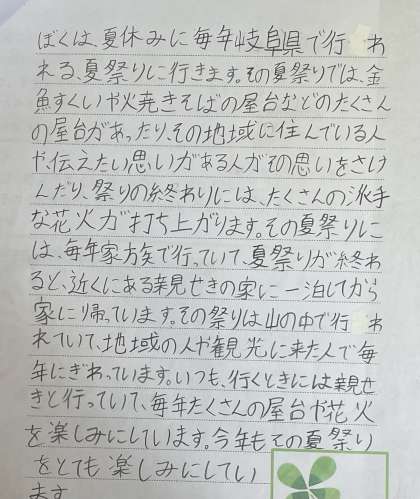 ぼくは、夏休みに毎年岐阜県で行われる、夏祭りに行きます。その夏祭りでは、金
魚すくいや焼きそばの屋台などのたくさん
の屋台があったり、その地域に住んでいる人
や、伝えたい思いがある人がその思いをさけ
んだり、祭りの終わりには、たくさんの派手
な花火が打ち上がります。その夏祭りに
は、毎年家族で行っていて、夏祭りが終わ
ると、近くにある親せきの家に一泊してから
家に帰っています。その祭りは山の中で行わ
れていて、地域の人や観光に来た人で毎
年にぎわっています。いつも、行くときには親せ
きと行っていて、毎年たくさんの屋台や花火
を楽しみにしています。今年もその夏祭り
をとても楽しみにしてい
ます